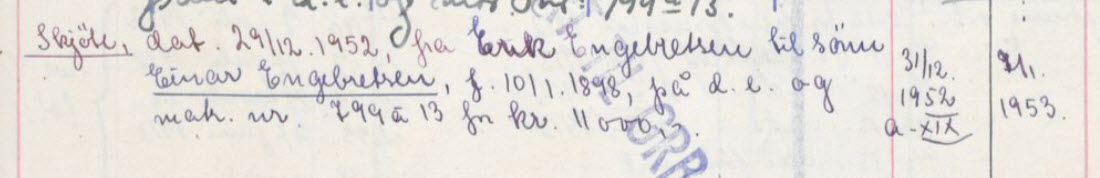 799 a 13.
Skjöte, dat. 29/12.1952, fra Erik Engebretsen til sönn
Einar Engebretsen, f. 10/1.1898, på d. e. og
mak. nr. 799 a 13 for kr. 11000,-.
31/12.
1952
a-XIX
1953.